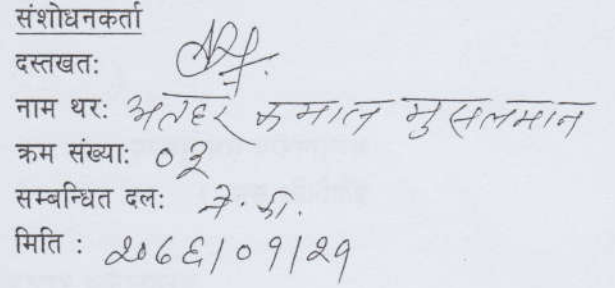 संशोधनकर्ता
दस्तखत:
नाम थर: अतहर कमाल मुसलमान
क्रम संख्या: ०३
सम्बन्धित दल: ने. का.
मिति : २०६६/०१/२१